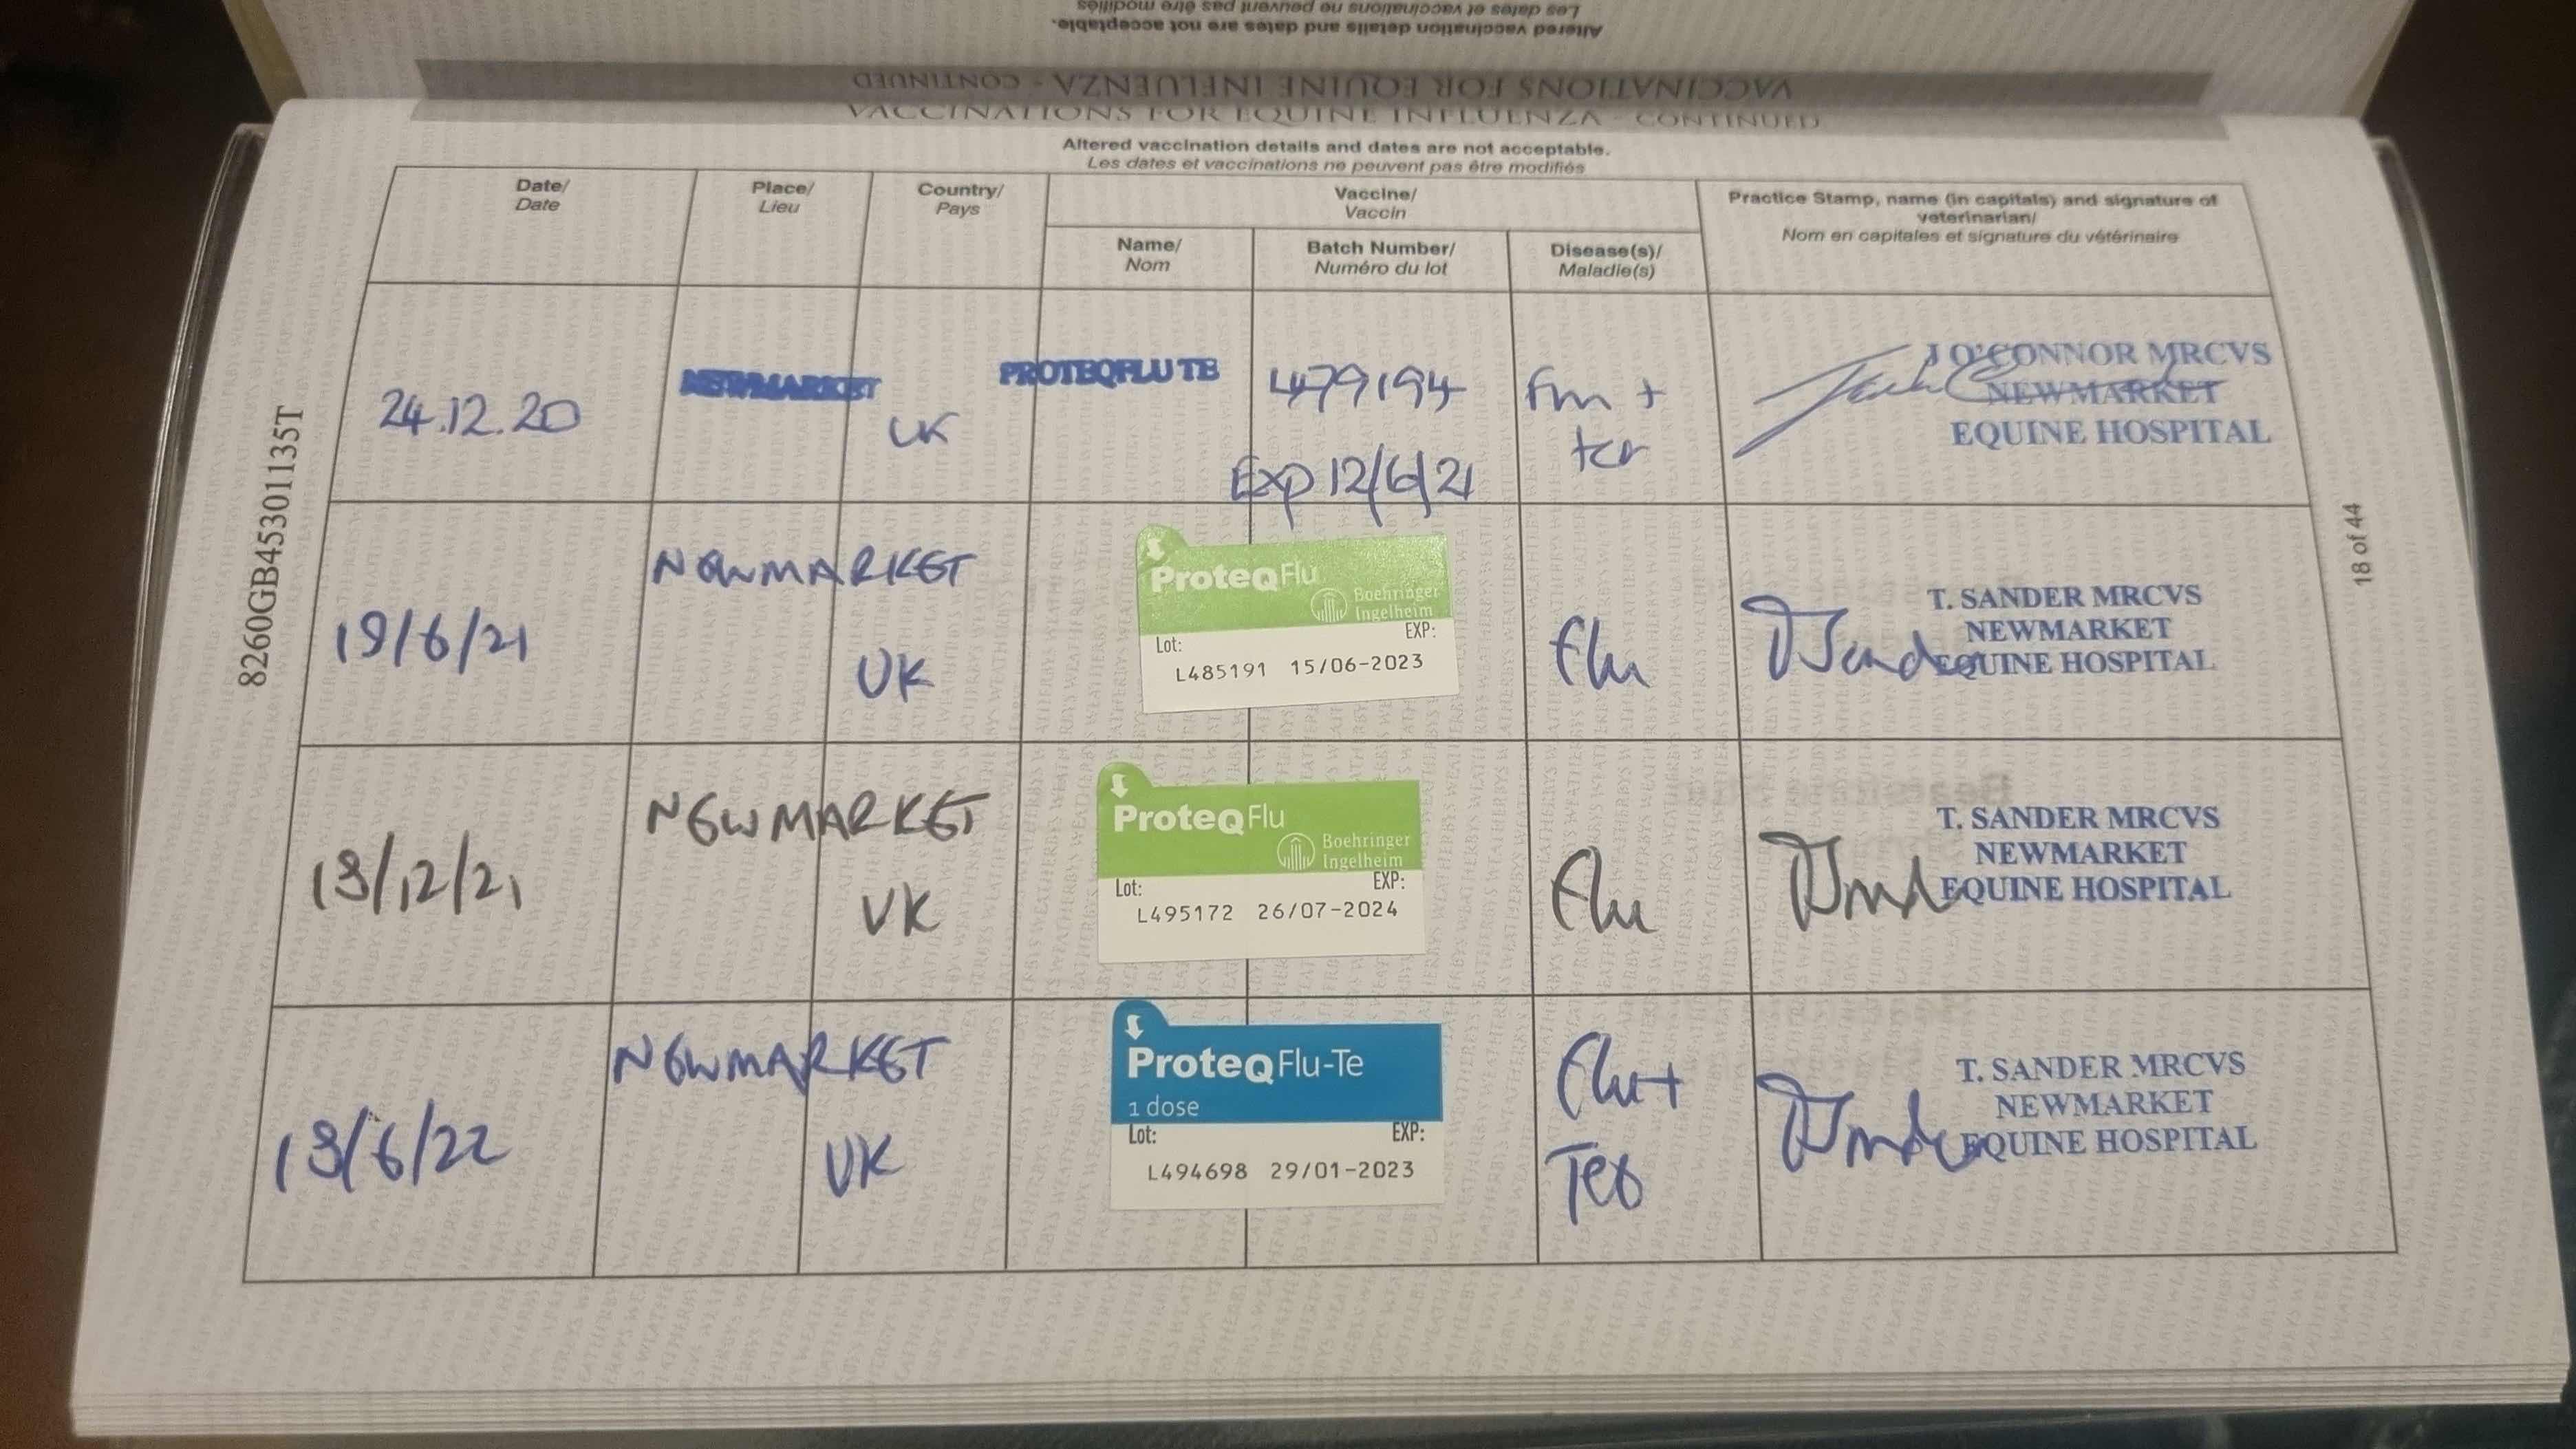 Les dates et vaccinations ne peuvent pas être modifiées
Altered vaccination details and dates are not acceptable.
VACCINATIONS FOR EQUINE INFLUENZA - CONTINUED
VACCINATIONS FOR EQUINE INFLUENZA - CONTINUED
Altered vaccination details and dates are not acceptable.
Les dates et vaccinations ne peuvent pas être modifiés
Date/
Date
Place/
Lieu
Country/
Pays
Vaccine/
Vaccin
Name/
Nom
Batch Number/
Numéro du lot
Disease(s)/
Maladie(s)
Practice Stamp, name (in capitals) and signature of
veterinarian/
Nom en capitales et signature du vétérinaire
24.12.20
NEWMARKET
UK
PROTEQFLU TE
L479194
Exp 12/6/21
Flu +
tet
J O'CONNOR MRCVS
NEWMARKET
EQUINE HOSPITAL
19/6/21
NEWMARKET
UK
ProteqFlu
Boehringer
Ingelheim
Lot: EXP:
L485191 15/06-2023
Flu
T. SANDER MRCVS
NEWMARKET
EQUINE HOSPITAL
NEWMARKET
UK
ProteqFlu
Boehringer
Ingelheim
Lot: EXP:
L495172 26/07-2024
Flu
T. SANDER MRCVS
NEWMARKET
EQUINE HOSPITAL
NEWMARKET
UK
ProteqFlu-Te
1 dose
Lot: EXP:
L494698 29/01-2023
Flu +
Tet
T. SANDER MRCVS
NEWMARKET
EQUINE HOSPITAL
8260GB45301135T
18 of 44